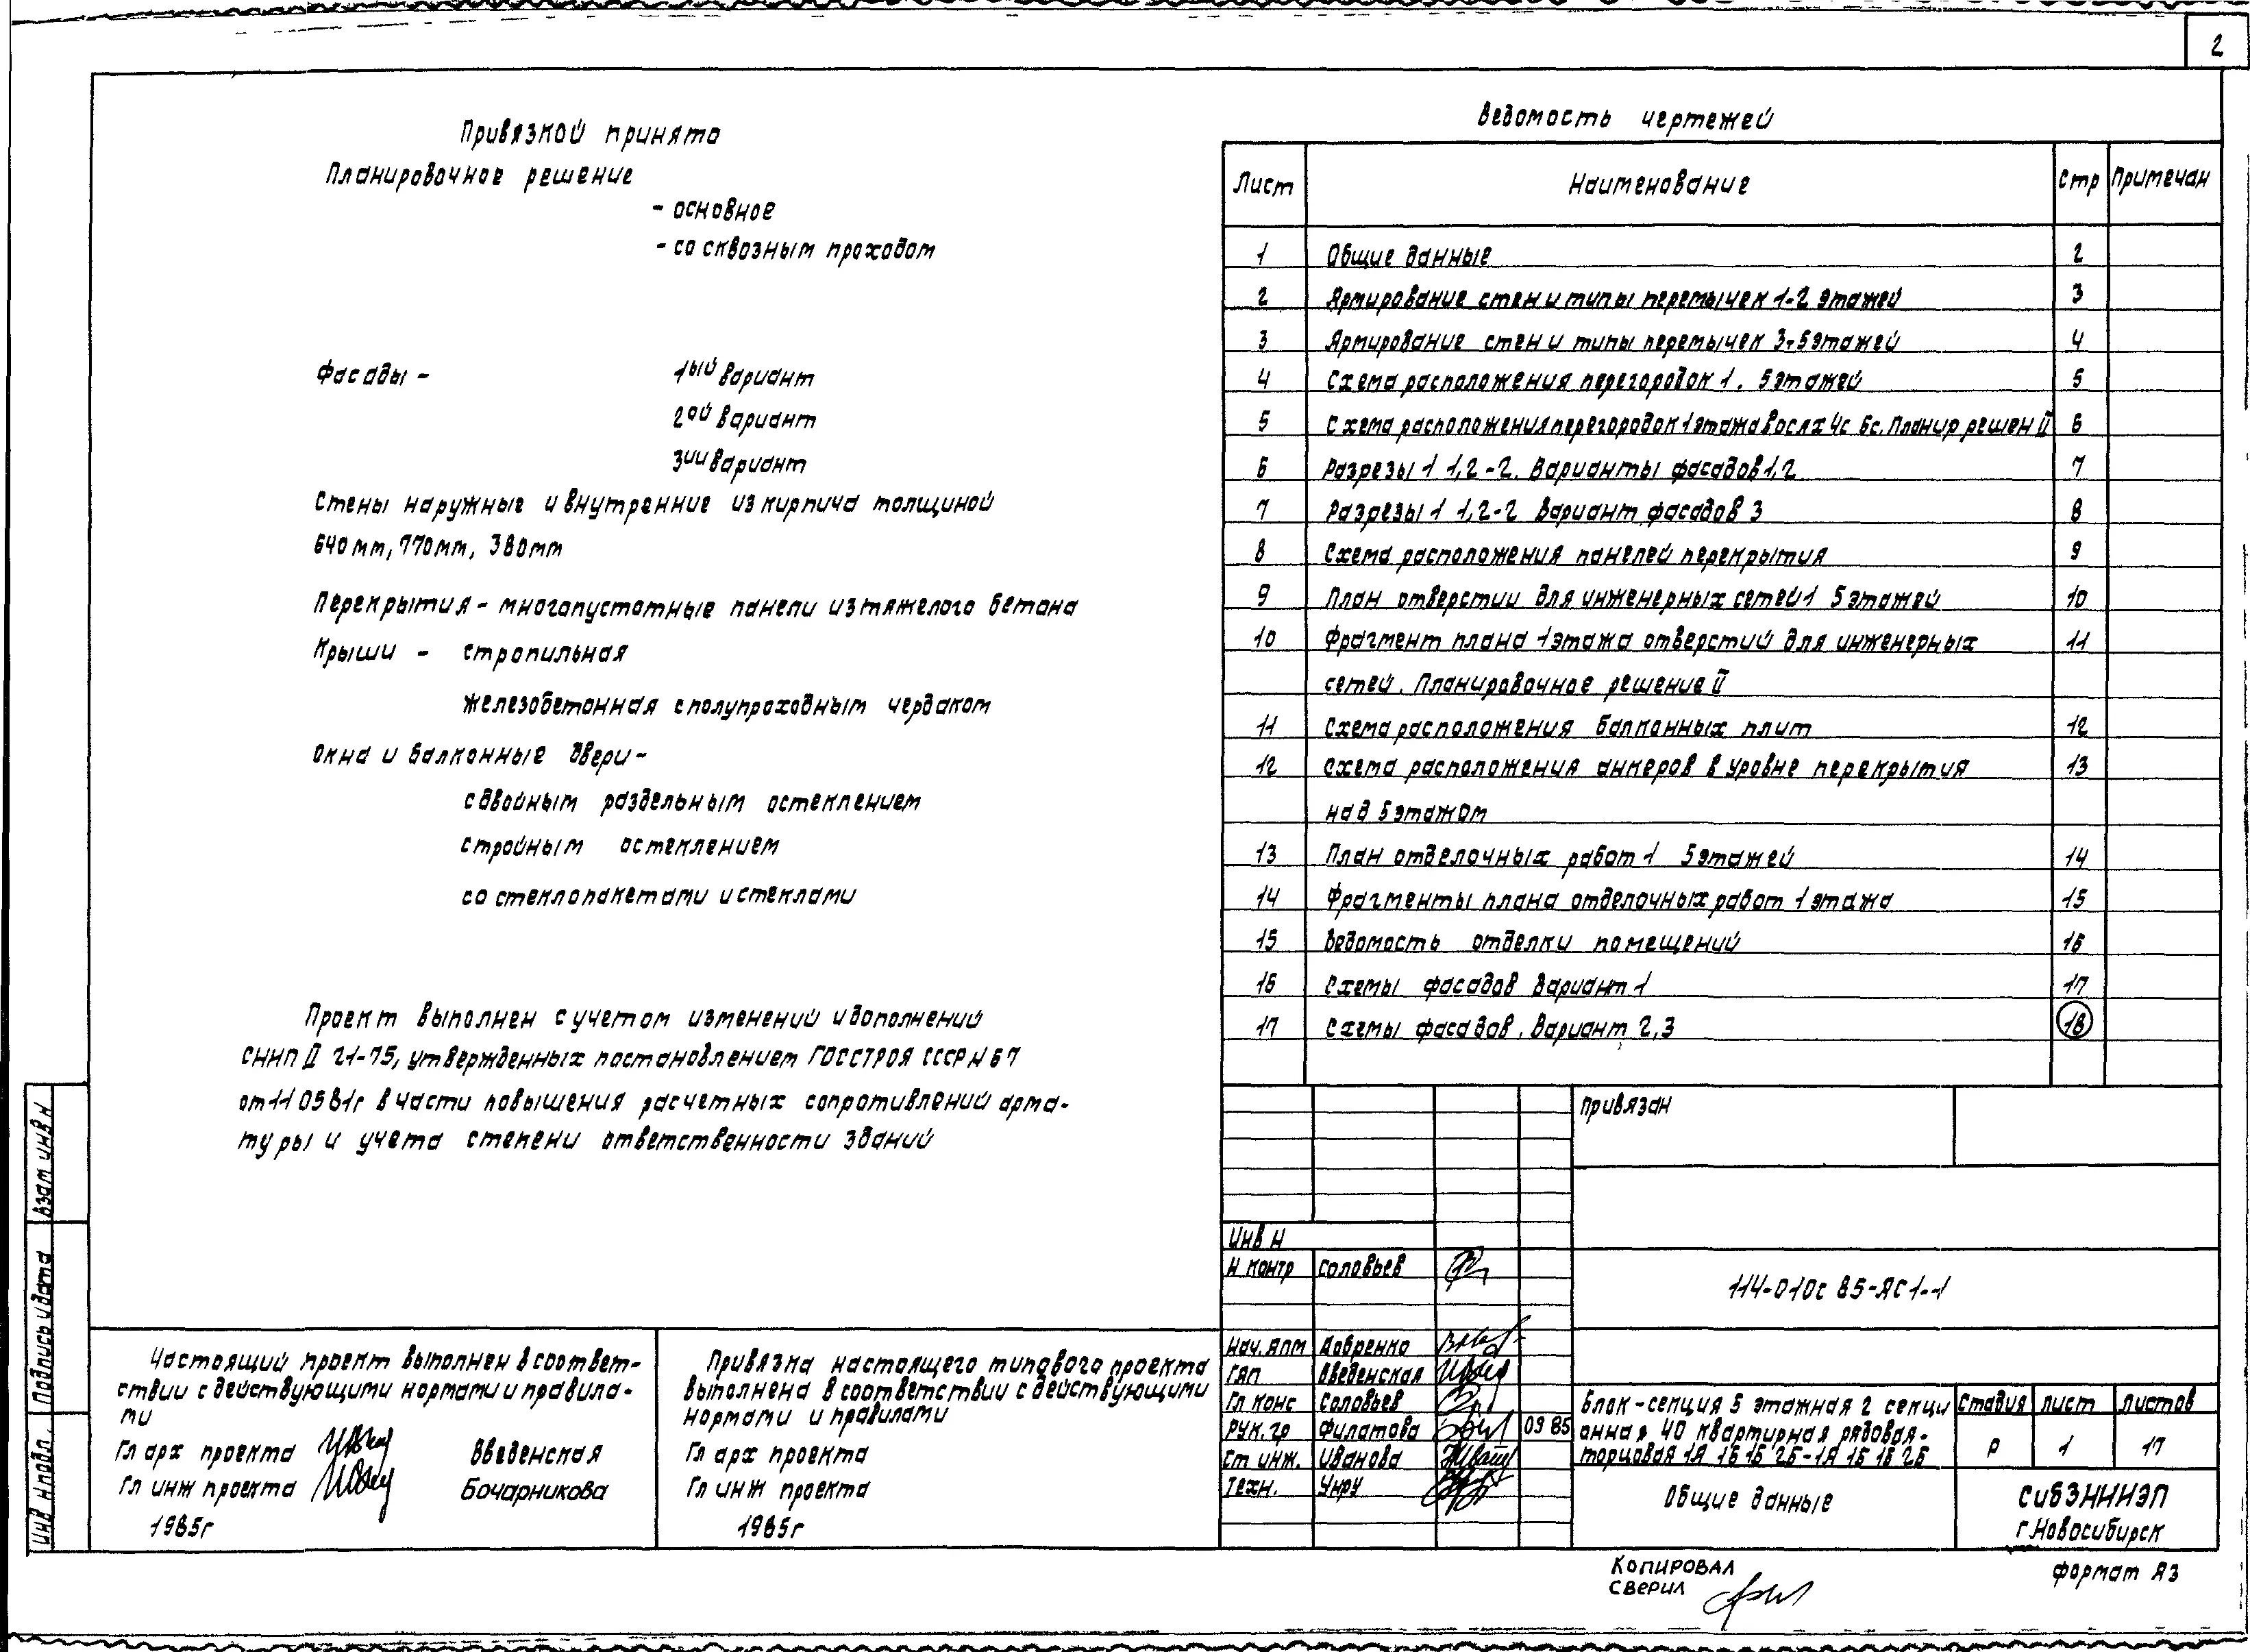 2
Привязкой принята
Планировочное решение
- основное
- со сквозным проходом
Фасады - 1ый вариант
2ой вариант
3ий вариант
Стены наружные и внутренние из кирпича толщиной
640мм, 770мм, 380мм
Перекрытия - многопустотные панели из тяжелого бетона
Крыши - стропильная
железобетонная с полупроходным чердаком
Окна и балконные двери -
с двойным раздельным остеклением
с тройным остеклением
со стеклопакетами и стеклами
Проект выполнен с учетом изменений и дополнений
СНиП II 21-75, утвержденных постановлением ГОССТРОЯ СССР N 67
от 11 05 81г в части повышения расчетных сопротивлений арма-
туры и учета степени ответственности зданий
Ведомость чертежей
Лист Наименование Стр Примечан
1 Общие данные 2
2 Армирование стен и типы перемычек 1-2 этажей 3
3 Армирование стен и типы перемычек 3-5 этажей 4
4 Схема расположения перегородок 1. 5 этажей 5
5 Схема расположения перегородок 1 этажа в осях 4с 6с. Планир решен II 6
6 Разрезы 1 1, 2-2. Варианты фасадов 1,2 7
7 Разрезы 1 1, 2-2 Вариант фасадов 3 8
8 Схема расположения панелей перекрытия 9
9 План отверстий для инженерных сетей 1 5 этажей 10
10 Фрагмент плана 1 этажа отверстий для инженерных 11
сетей. Планировочное решение II
11 Схема расположения балконных плит 12
12 Схема расположения анкеров в уровне перекрытия 13
над 5 этажом
13 План отделочных работ 1 5 этажей 14
14 Фрагменты плана отделочных работ 1 этажа 15
15 Ведомость отделки помещений 16
16 Схемы фасадов Вариант 1 17
17 Схемы фасадов. Вариант 2,3 18
Привязан
Инв N
Н контр Соловьев
114-010с 85-АС1-1
Нач. АПМ Добренко
ГАП Введенская
Гл конс Соловьев
Рук. гр Филатова 09 85
Ст инж. Иванова
Техн. Унру
Блок-секция 5 этажная 2 секци
онная 40 квартирная рядовая-
торцовая 1А 1Б 1Б 2Б-1А 1Б 1Б 2Б
Стадия Лист Листов
Р 1 17
Общие данные
СибЗНИИЭП
г.Новосибирск
Настоящий проект выполнен в соответ-
ствии с действующими нормами и правила-
ми
Гл арх проекта Введенская
Гл инж проекта Бочарникова
1985г
Привязка настоящего типового проекта
выполнена в соответствии с действующими
нормами и правилами
Гл арх проекта
Гл инж проекта
1985г
Взам инв N
Подпись и дата
Инв N подл.
Копировал
Сверил
Формат А3